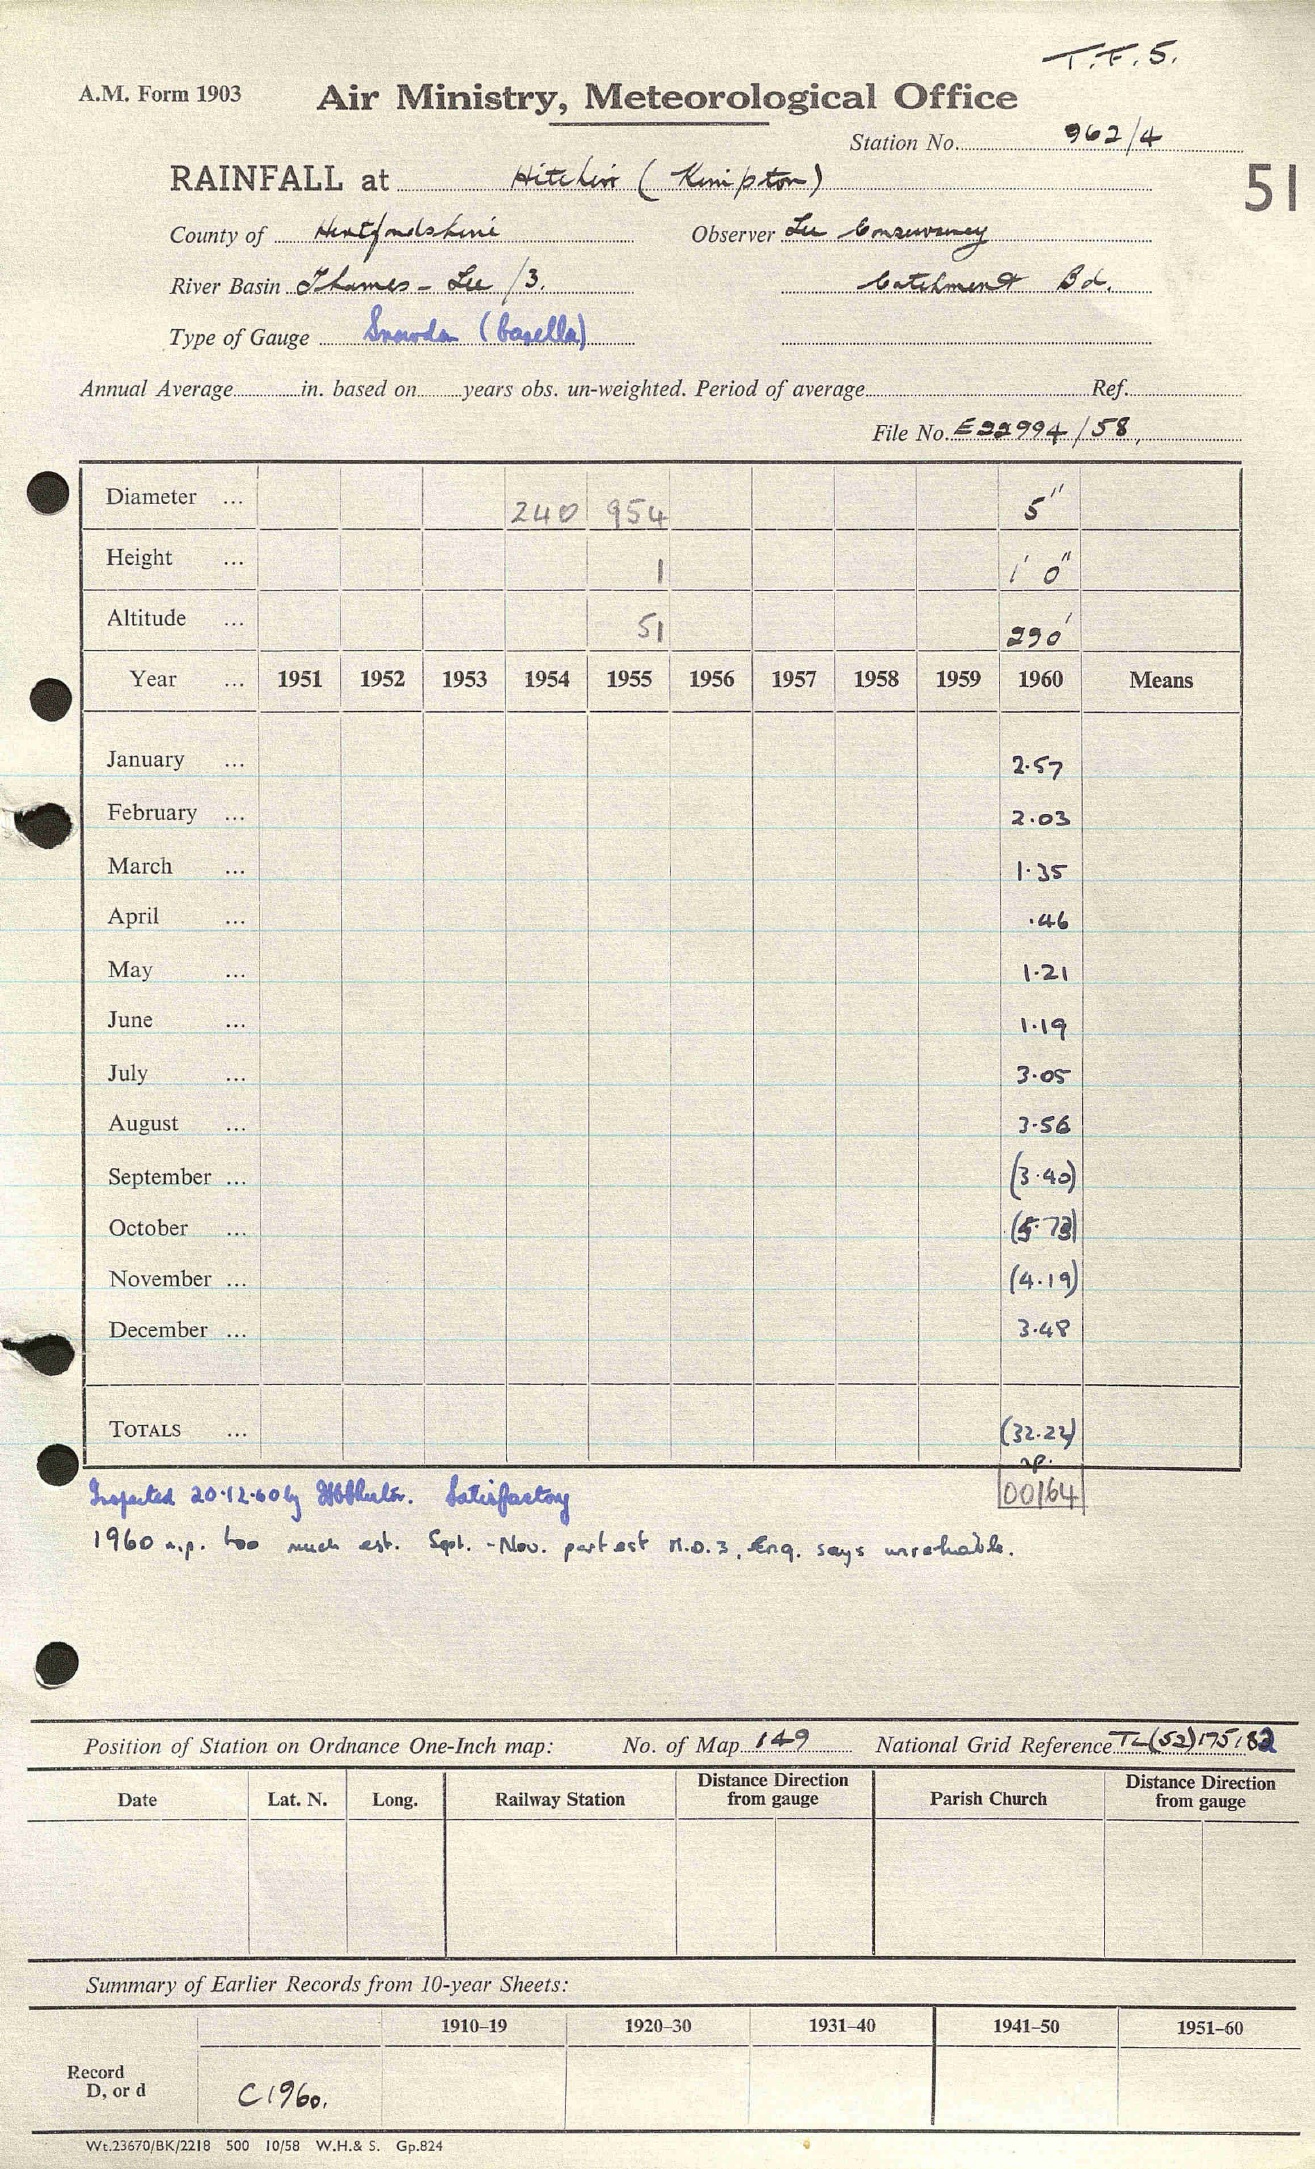 T.F.S.
A.M. Form 1903 Air Ministry, Meteorological Office
Station No. 962/4
RAINFALL at Hitchin (Kimpton) 51
County of Hertfordshire Observer Lee Conservancy
River Basin Thames - Lee /3. Catchment Bd.
Type of Gauge Snowdon (Casella)
Annual Average in. based on years obs. un-weighted. Period of average Ref.
File No. E22994/58
Diameter ... 240 954 5"
Height ... 1 1' 0"
Altitude ... 51 290'
Year ... 1951 1952 1953 1954 1955 1956 1957 1958 1959 1960 Means
January ... 2.57
February ... 2.03
March ... 1.35
April ... .46
May ... 1.21
June ... 1.19
July ... 3.05
August ... 3.56
September ... (3.40)
October ... (5.73)
November ... (4.19)
December ... 3.48
TOTALS ... (32.22)
n.p.
00164
Inspected 20.12.60 by Satisfactory
1960 n.p. too much est. Sept. - Nov. part est M.O.3, Eng. says unreliable.
Position of Station on Ordnance One-Inch map: No. of Map 149 National Grid Reference TL(52)175182
Date Lat. N. Long. Railway Station Distance Direction from gauge Parish Church Distance Direction from gauge
Summary of Earlier Records from 10-year Sheets:
1910–19 1920–30 1931–40 1941–50 1951–60
Record
D, or d C1960.
Wt.23670/BK/2218 500 10/58 W.H.& S. Gp.824